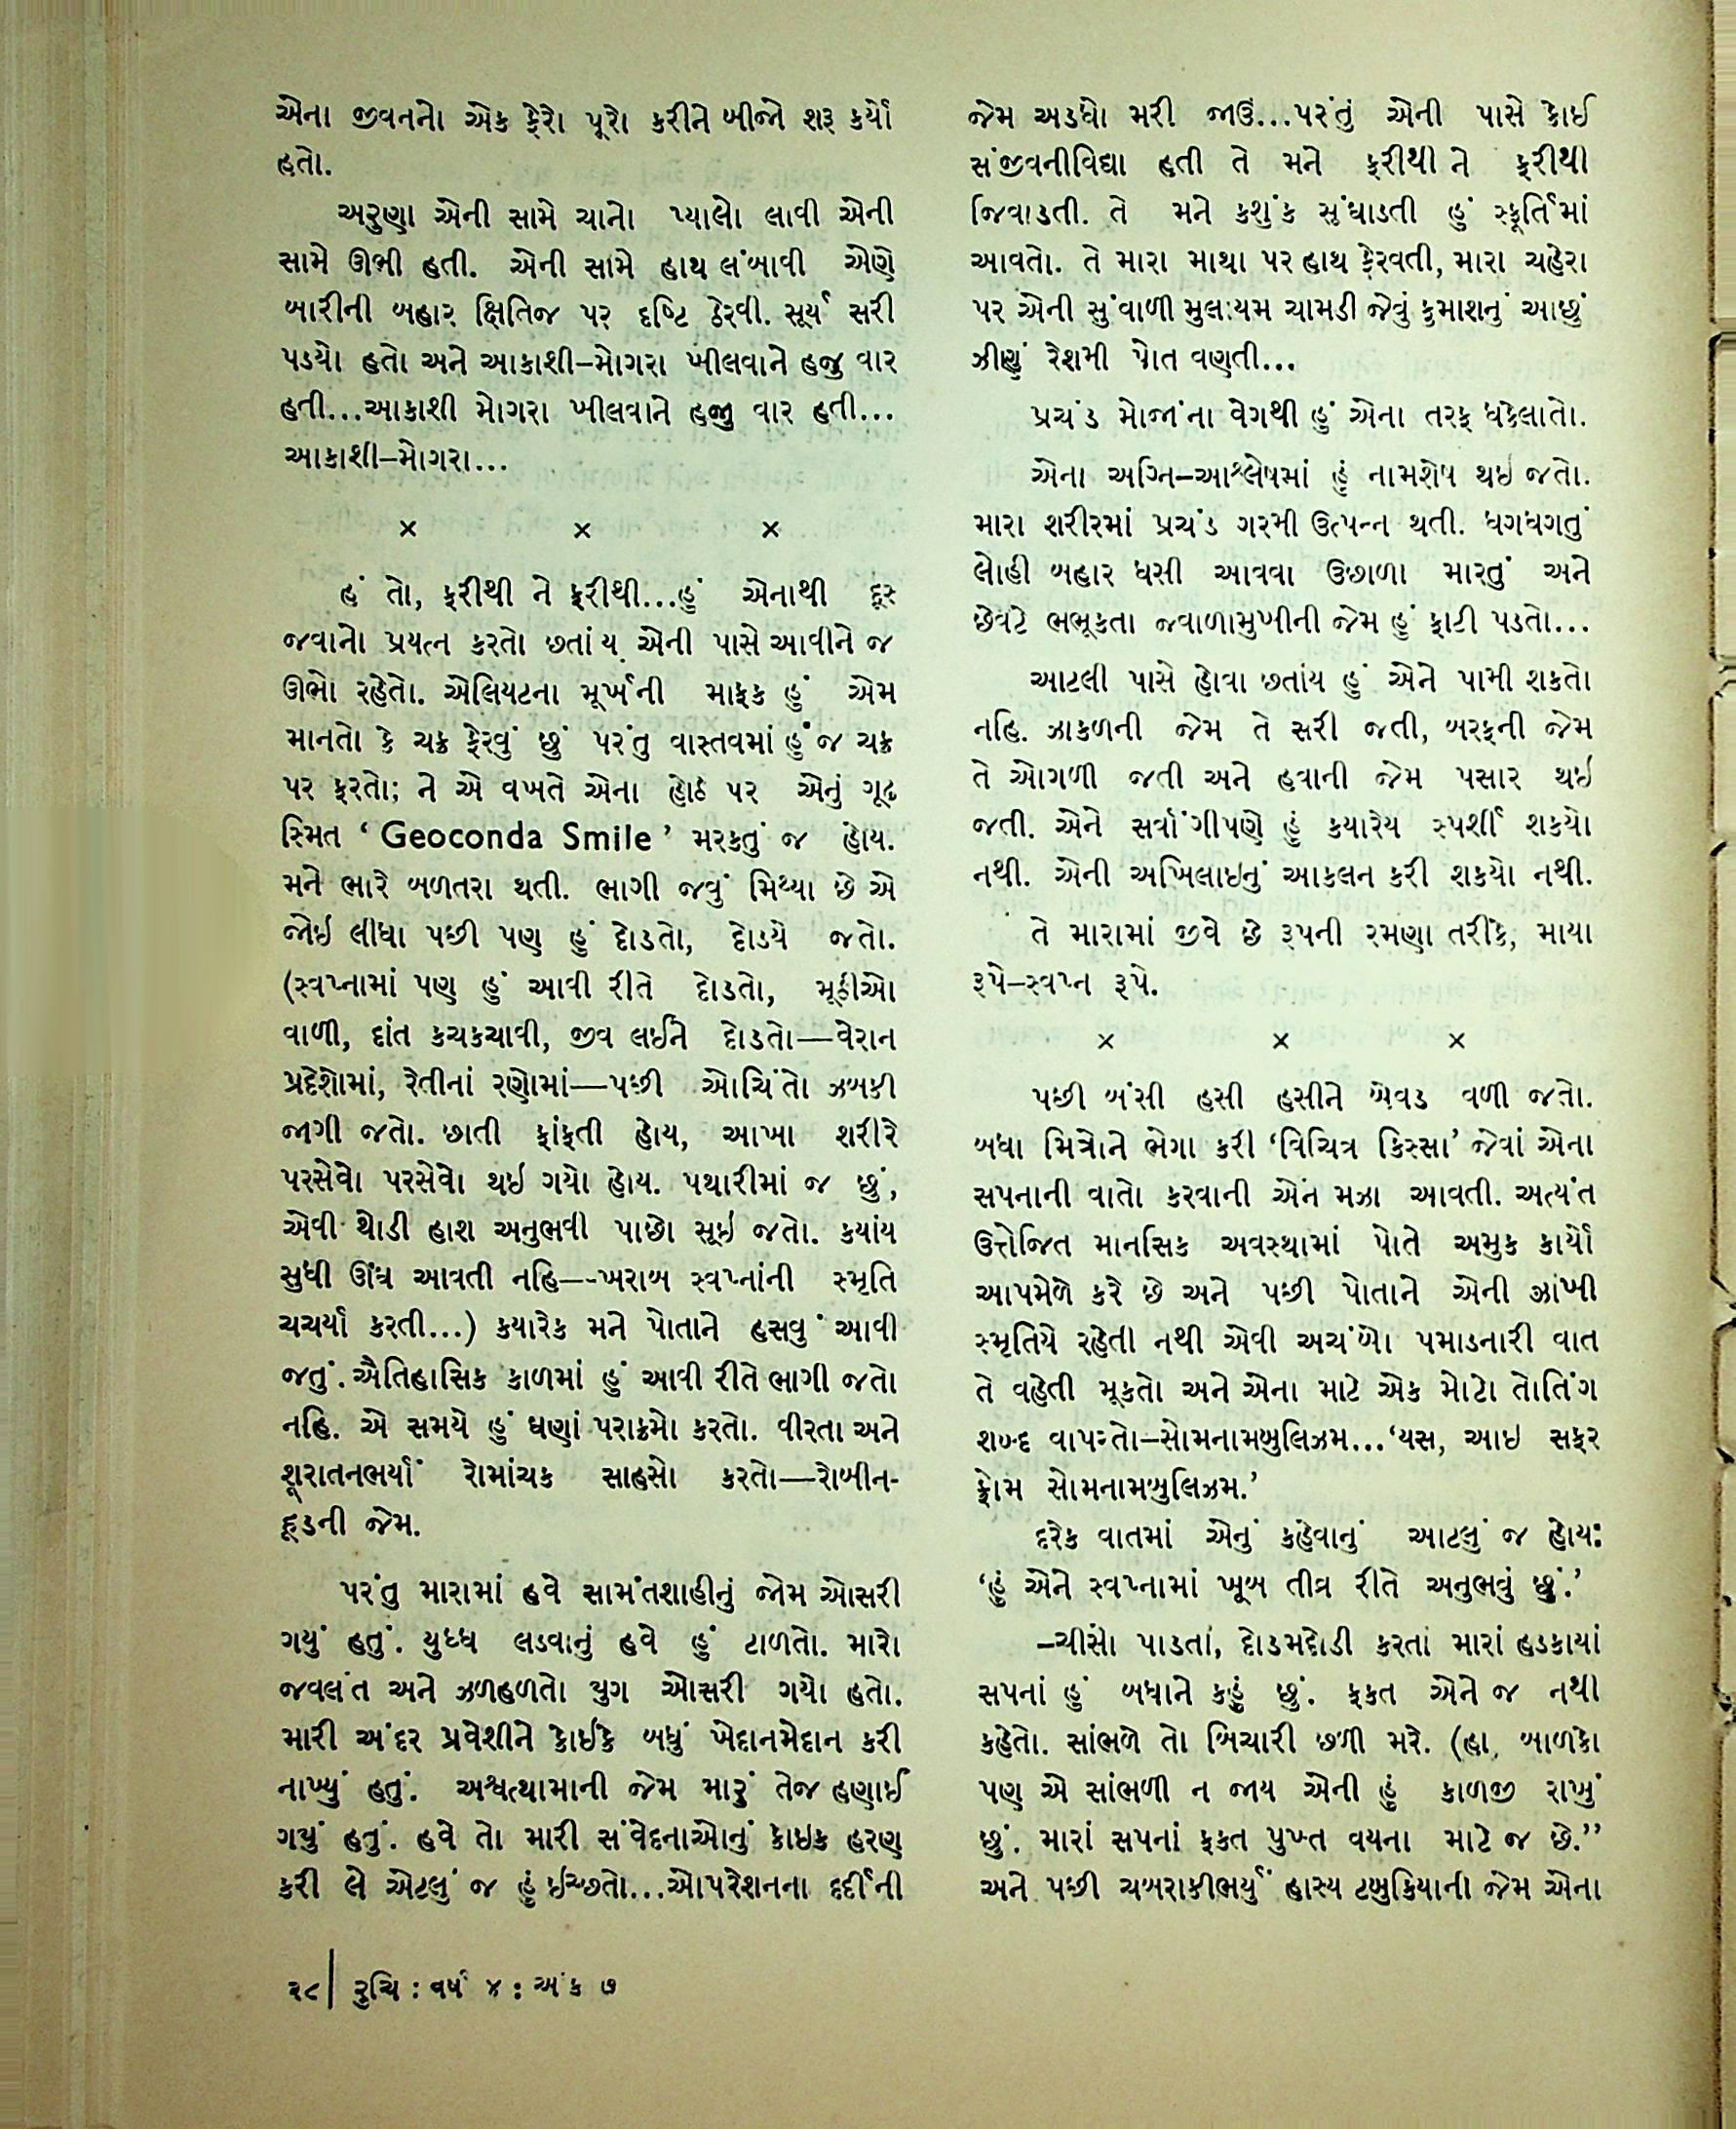 એના જીવનનો એક ફેરો પૂરો કરીને બીજો શરૂ કર્યો
હતો.
અરુણા એની સામે ચાનો પ્યાલો લાવી એની
સામે ઊભી હતી. એની સામે હાથ લંબાવી એણે
બારીની બહાર ક્ષિતિજ પર દૃષ્ટિ ઠેરવી. સૂર્ય સરી
પડયો હતો અને આકાશી–મોગરા ખીલવાને હજુ વાર
હતી...આકાશી મોગરા ખીલવાને હજી વાર હતી...
આકાશી–મોગરા...
× × ×
હું તો, ફરીથી ને ફરીથી...હું એનાથી દૂર
જવાનો પ્રયત્ન કરતો છતાંય એની પાસે આવીને જ
ઊભો રહેતો. એલિયટના મૂર્ખની માફક હું એમ
માનતો કે ચક્ર ફેરવું છું પરંતુ વાસ્તવમાં હું જ ચક્ર
પર ફરતો; ને એ વખતે એના હોઠ પર એનું ગૂઢ
સ્મિત ‘ Geoconda Smile ’ મરકતું જ હોય.
મને ભારે બળતરા થતી. ભાગી જવું મિથ્યા છે એ
જોઇ લીધા પછી પણ હું દોડતો, દોડયે જતો.
(સ્વપ્નામાં પણ હું આવી રીતે દોડતો, મૂઠીઓ
વાળી, દાંત કચકચાવી, જીવ લઈને દોડતો—વેરાન
પ્રદેશોમાં, રેતીનાં રણોમાં—પછી ઓચિંતો ઝબકી
જાગી જતો. છાતી ફાંફતી હોય, આખા શરીરે
પરસેવો પરસેવો થઇ ગયો હોય. પથારીમાં જ છું,
એવી થોડી હાશ અનુભવી પાછો સૂઇ જતો. કયાંય
સુધી ઊંઘ આવતી નહિ—-ખરાબ સ્વપ્નાંની સ્મૃતિ
ચચર્યા કરતી...) કયારેક મને પોતાને હસવું આવી
જતું. ઐતિહાસિક કાળમાં હું આવી રીતે ભાગી જતો
નહિ. એ સમયે હું ઘણાં પરાક્રમો કરતો. વીરતા અને
શૂરાતનભર્યાં રોમાંચક સાહસો કરતો—રોબીન-
હૂડની જેમ.
પરંતુ મારામાં હવે સામંતશાહીનું જોમ ઓસરી
ગયું હતું. યુધ્ધ લડવાનું હવે હું ટાળતો. મારો
જવલંત અને ઝળહળતો યુગ ઓસરી ગયો હતો.
મારી અંદર પ્રવેશીને કોઈકે બધું ખેદાનમેદાન કરી
નાખ્યું હતું. અશ્વત્થામાની જેમ મારું તેજ હણાઈ
ગયું હતું. હવે તો મારી સંવેદનાઓનું કોઇક હરણ
કરી લે એટલું જ હું ઇચ્છતો...ઓપરેશનના દર્દીની
જેમ અડધો મરી જાઉં...પરંતું એની પાસે કોઈ
સંજીવનીવિદ્યા હતી તે મને ફરીથી ને ફરીથી
જિવાડતી. તે મને કશુંક સુંઘાડતી હું સ્ફૂર્તિમાં
આવતો. તે મારા માથા પર હાથ ફેરવતી, મારા ચહેરા
પર એની સુંવાળી મુલાયમ ચામડી જેવું કુમાશનું આછું
ઝીણું રેશમી પોત વણતી...
પ્રચંડ મોજાંના વેગથી હું એના તરફ ધકેલાતો.
એના અગ્નિ–આશ્લેષમાં હું નામશેષ થઇ જતો.
મારા શરીરમાં પ્રચંડ ગરમી ઉત્પન્ન થતી. ધગધગતું
લોહી બહાર ધસી આવવા ઉછાળા મારતું અને
છેવટે ભભૂકતા જવાળામુખીની જેમ હું ફાટી પડતો...
આટલી પાસે હોવા છતાંય હું એને પામી શકતો
નહિ. ઝાકળની જેમ તે સરી જતી, બરફની જેમ
તે ઓગળી જતી અને હવાની જેમ પસાર થઇ
જતી. એને સર્વાંગીપણે હું કયારેય સ્પર્શી શકયો
નથી. એની અખિલાઇનું આકલન કરી શકયો નથી.
તે મારામાં જીવે છે રૂપની રમણા તરીકે, માયા
રૂપે–સ્વપ્ન રૂપે.
× × ×
પછી બંસી હસી હસીને બેવડ વળી જતો.
બધા મિત્રોને ભેગા કરી ‘વિચિત્ર કિસ્સા’ જેવાં એના
સપનાની વાતો કરવાની એને મઝા આવતી. અત્યંત
ઉત્તેજિત માનસિક અવસ્થામાં પોતે અમુક કાર્યો
આપમેળે કરે છે અને પછી પોતાને એની ઝાંખી
સ્મૃતિયે રહેતી નથી એવી અચંબો પમાડનારી વાત
તે વહેતી મૂકતો અને એના માટે એક મોટો તોતિંગ
શબ્દ વાપરતો–સોમનામબુલિઝમ...‘યસ, આઇ સફર
ફ્રોમ સોમનામબુલિઝમ.’
દરેક વાતમાં એનું કહેવાનું આટલું જ હોય:
‘હું એને સ્વપ્નામાં ખૂબ તીવ્ર રીતે અનુભવું છું.’
–ચીસો પાડતાં, દોડમદોડી કરતાં મારાં હડકાયાં
સપનાં હું બધાને કહું છું. ફકત એને જ નથી
કહેતો. સાંભળે તો બિચારી છળી મરે. (હા, બાળકો
પણ એ સાંભળી ન જાય એની હું કાળજી રાખું
છું. મારાં સપનાં ફકત પુખ્ત વયના માટે જ છે.’’
અને પછી ચબરાકીભર્યું હાસ્ય ટબુકિયાની જેમ એના
૨૮| રુચિ : વર્ષ ૪ : અંક ૭